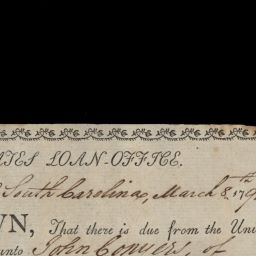 TATES LOAN-OFFICE.
South Carolina, March 8th 179
WN, That there is due from the Uni
unto John Conyers, of